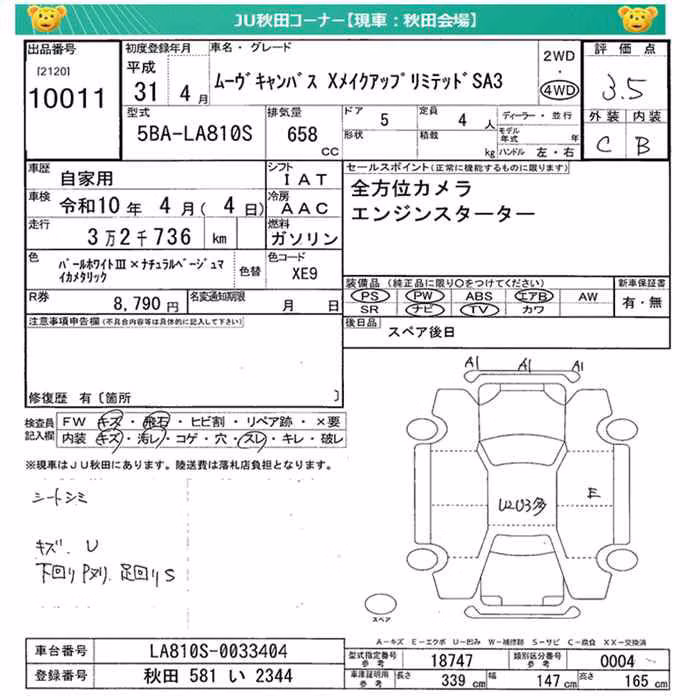 JU秋田コーナー【現車：秋田会場】
出品番号
[2120]
10011
初度登録年月
平成
31 4月
車名・グレード
ムーヴキャンバス XメイクアップリミテッドSA3
2WD
・
4WD
評価点
3.5
外装 内装
C B
型式
5BA-LA810S
排気量
658
CC
ドア
5
定員
4人
形状
積載
kg
ディーラー・並行
モデル年式 年
ハンドル 左・右
車歴
自家用
シフト
IAT
車検
令和10年 4月(4日)
冷房
AAC
走行
3万2千736 km
燃料
ガソリン
色
パールホワイトⅢ×ナチュラルベージュマイカメタリック
色替
色コード
XE9
R券
8,790円
名変通知期限
月 日
セールスポイント(正常に機能するものに限ります)
全方位カメラ
エンジンスターター
装備品(純正品に限り○をつけてください)
PS PW ABS エアB AW
SR ナビ TV カワ
新車保証書
有・無
後日品
スペア後日
注意事項申告欄(不具合内容等は具体的に記入して下さい)
修復歴 有〔箇所 〕
検査員記入欄
FW キズ・飛石・ヒビ割・リペア跡・×要
内装 キズ・汚レ・コゲ・穴・スレ・キレ・破レ
※現車はJU秋田にあります。陸送費は落札店負担となります。
シートシミ
キズ. U
下回りPヌリ. 足回りS
A1 A1 A1
U2U3多
E
スペア
A-キズ E-エクボ U-凹み W-補修跡 S-サビ C-腐食 XX-交換済
車台番号
LA810S-0033404
登録番号
秋田 581 い 2344
型式指定番号
参考
18747
類別区分番号
参考
0004
車庫証明用
参考
長さ 339 cm 幅 147 cm 高さ 165 cm